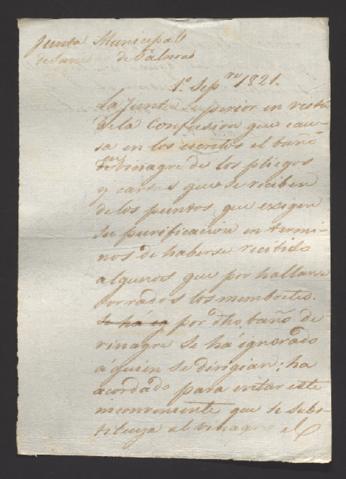 Junta Municipal
de Sanidad de Palma
1º Sepbre 1821.
La Junta Superior en vista
de la confusion que cau-
sa en los escritos el baño
de vinagre de los pliegos
y cartas que se reciben
de los puntos que exigen
su purificacion en termi-
nos de haberse recibido
algunos que por hallarse
borrados los membretes
se há eq por dho baño de
vinagre se ha ignorado
á quien se dirigian; ha
acordado para evitar este
inconveniente que se subs-
tituya al vinagre el